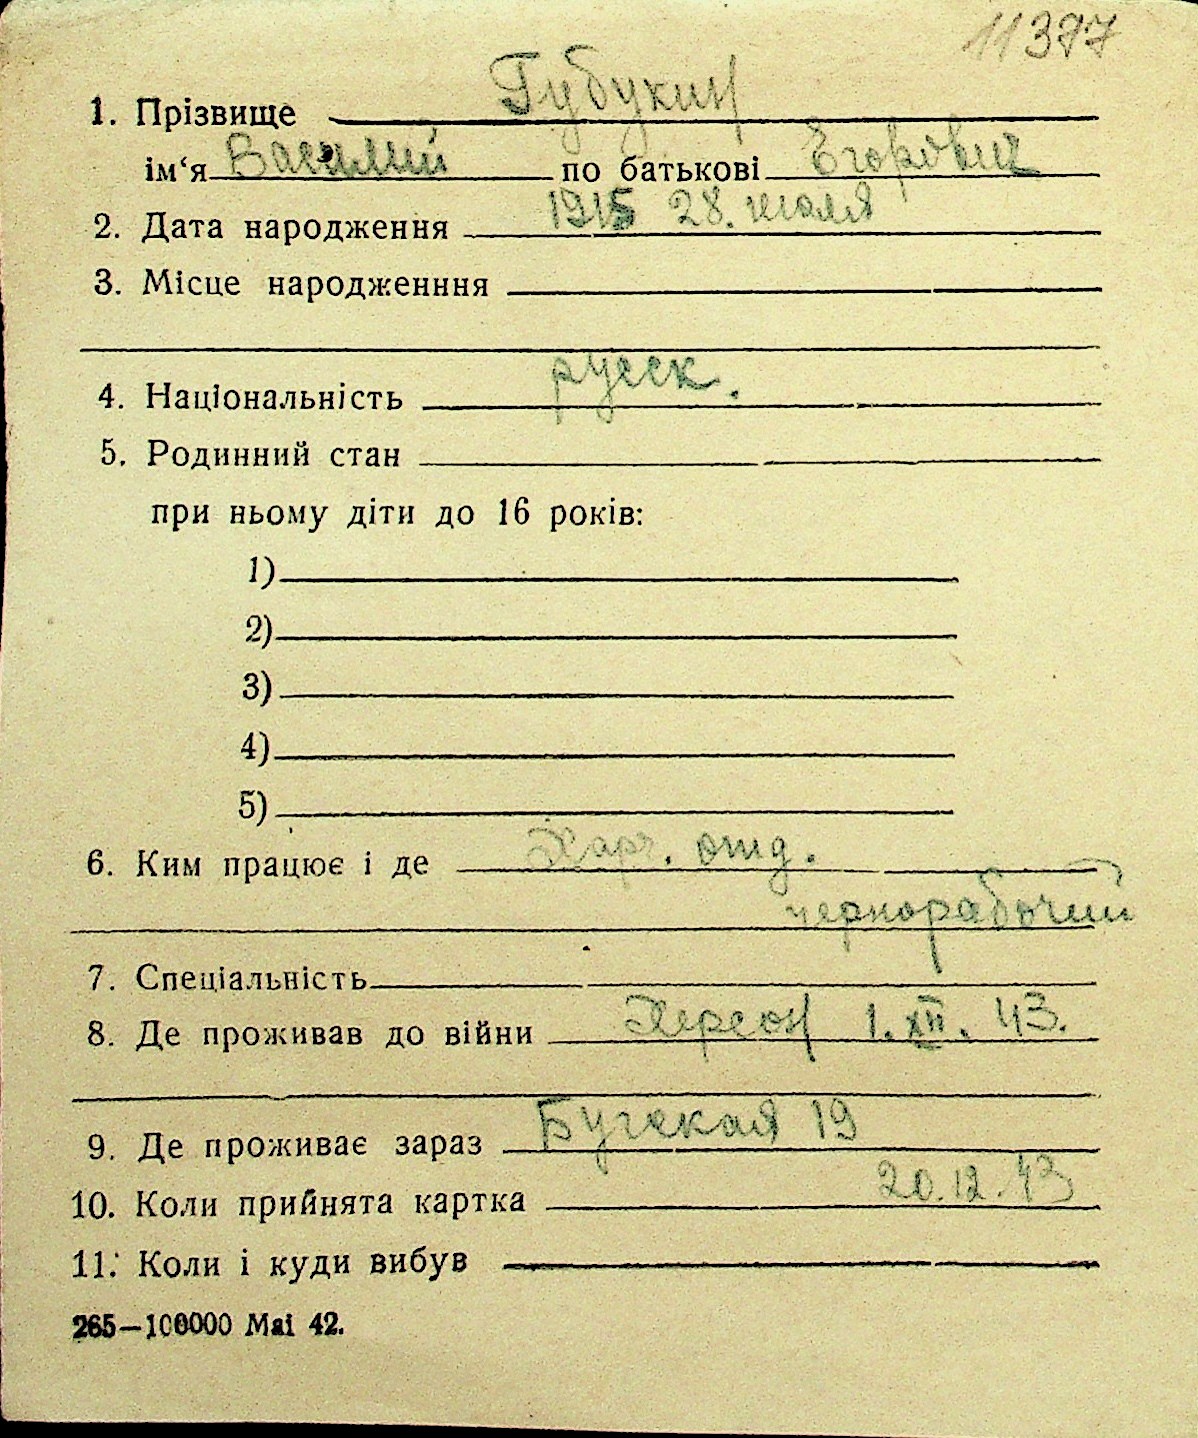 11377
1. Прізвище Губукин
ім‘я Василий по батькові Егорович
2. Дата народження 1915 28. июля
3. Місце народженння
4. Національність русск.
5. Родинний стан
при ньому діти до 16 років:
1)
2)
3)
4)
5)
6. Ким працює і де Харч. отд.
чернорабочий
7. Спеціальність
8. Де проживав до війни Херсон 1. XII. 43.
9. Де проживає зараз Бугская 19
10. Коли прийнята картка 20.12.43
11. Коли і куди вибув
265—100000 Mai 42.